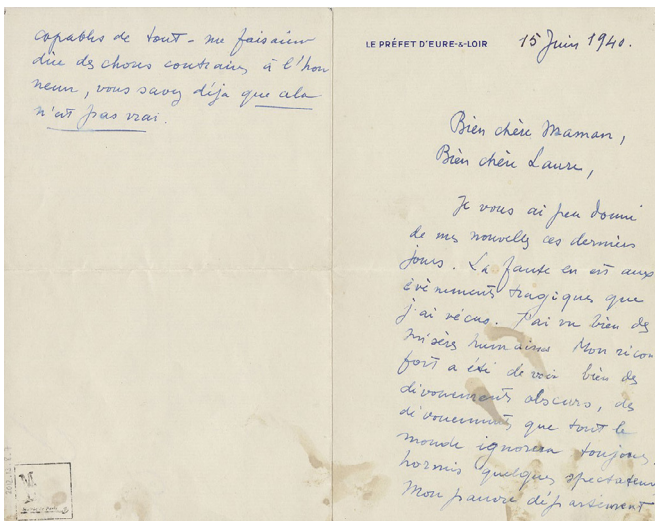 capables de tout - me faisaient
dire des choses contraires à l'hon
neur, vous savez déja que cela
n'est pas vrai.
LE PRÉFET D'EURE-&-LOIR
15 Juin 1940.
Bien chère Maman,
Bien chère Laure,
Je vous ai peu donné
de mes nouvelles ces derniers
jours. La faute en est aux
évènements tragiques que
j'ai vécus. J'ai vu bien des
misères humaines Mon récon
fort a été de voir bien des
dévouements obscurs, des
dévouements que tout le
monde ignorera toujours,
hormis quelques spectateurs
Mon pauvre département